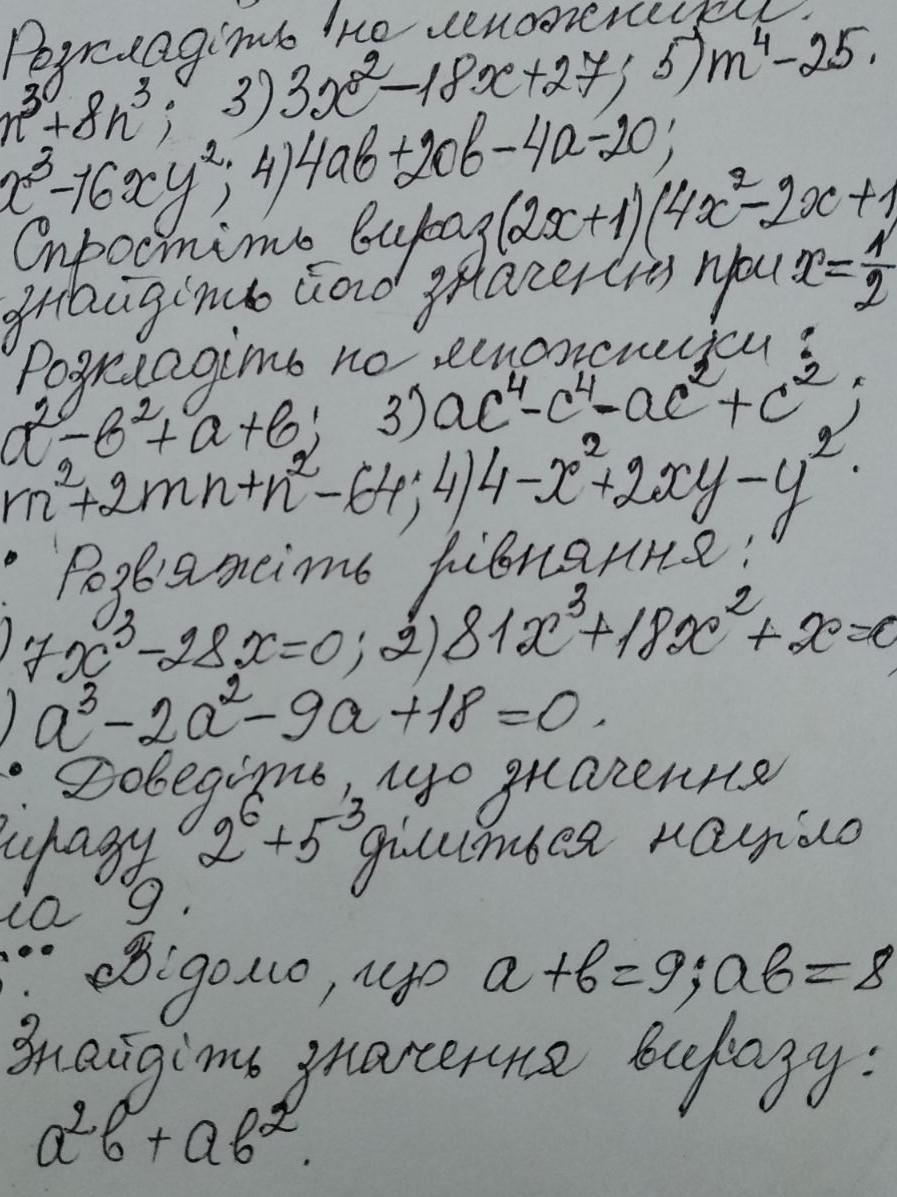 Розкладіть на множники.
m³+8n³; 3)3x²-18x+27; 5)m⁴-25.
x³-16xy²; 4)4ab+20b-4a-20;
Спростіть вираз(2x+1)(4x²-2x+1
знайдіть його значення при x=1/2
Розкладіть на множники:
a²-b²+a+b; 3)ac⁴-c⁴-ac²+c²;
m²+2mn+n²-64; 4)4-x²+2xy-y².
Розв'яжіть рівняння:
)7x³-28x=0; 2)81x³+18x²+x=0
)a³-2a²-9a+18=0.
• Доведіть, що значення
виразу 2⁶+5³ділиться націло
на 9.
Відомо, що a+b=9; ab=8
Знайдіть значення виразу:
a²b+ab².